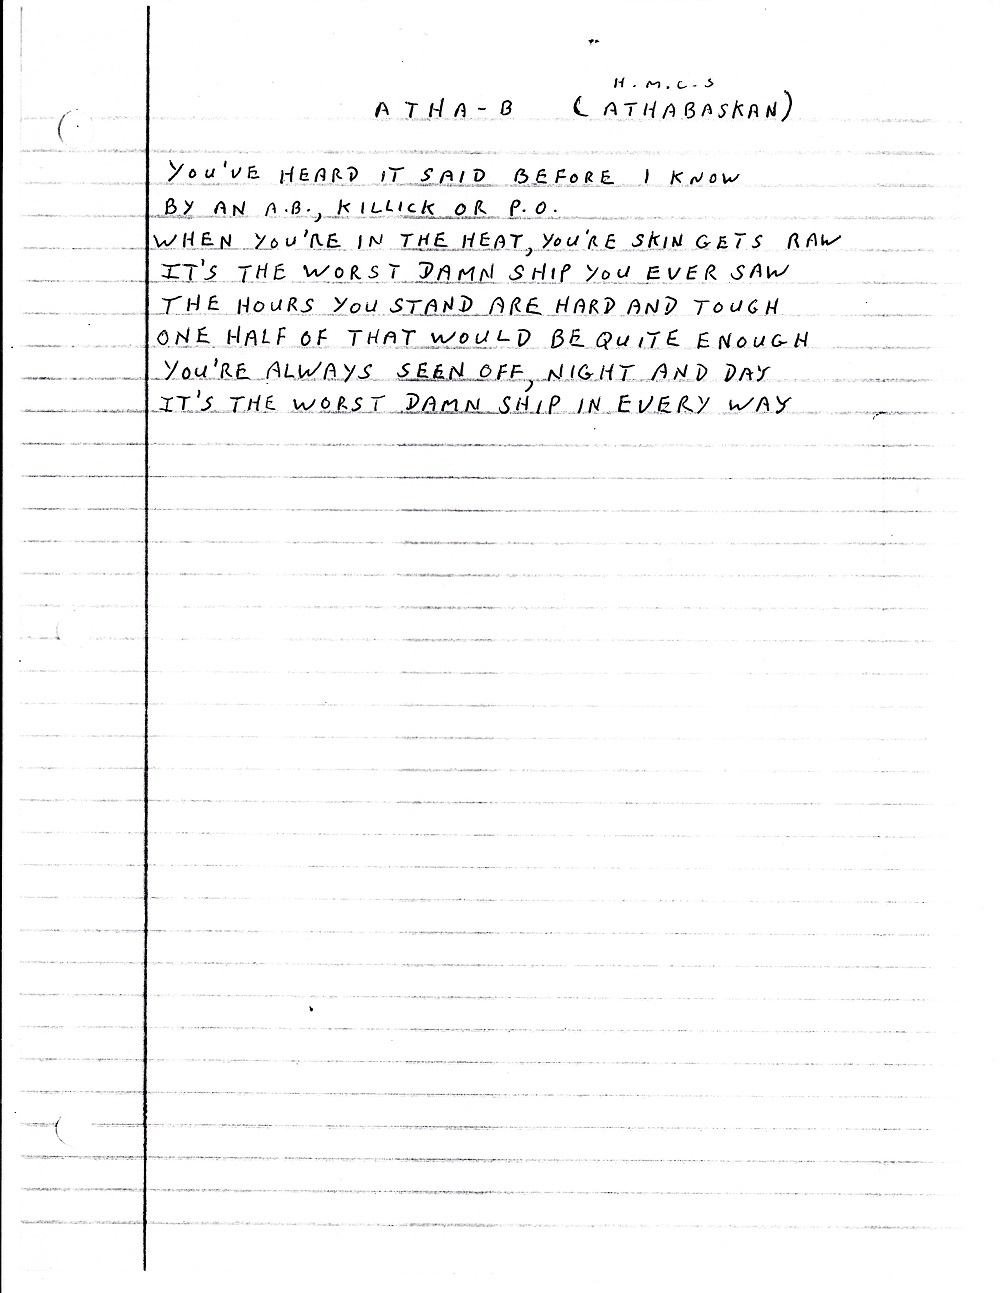 H.M.C.S
ATHA-B (ATHABASKAN)
YOU'VE HEARD IT SAID BEFORE I KNOW
BY AN A.B., KILLICK OR P.O.
WHEN YOU'RE IN THE HEAT, YOU'RE SKIN GETS RAW
IT'S THE WORST DAMN SHIP YOU EVER SAW
THE HOURS YOU STAND ARE HARD AND TOUGH
ONE HALF OF THAT WOULD BE QUITE ENOUGH
YOU'RE ALWAYS SEEN OFF, NIGHT AND DAY
IT'S THE WORST DAMN SHIP IN EVERY WAY